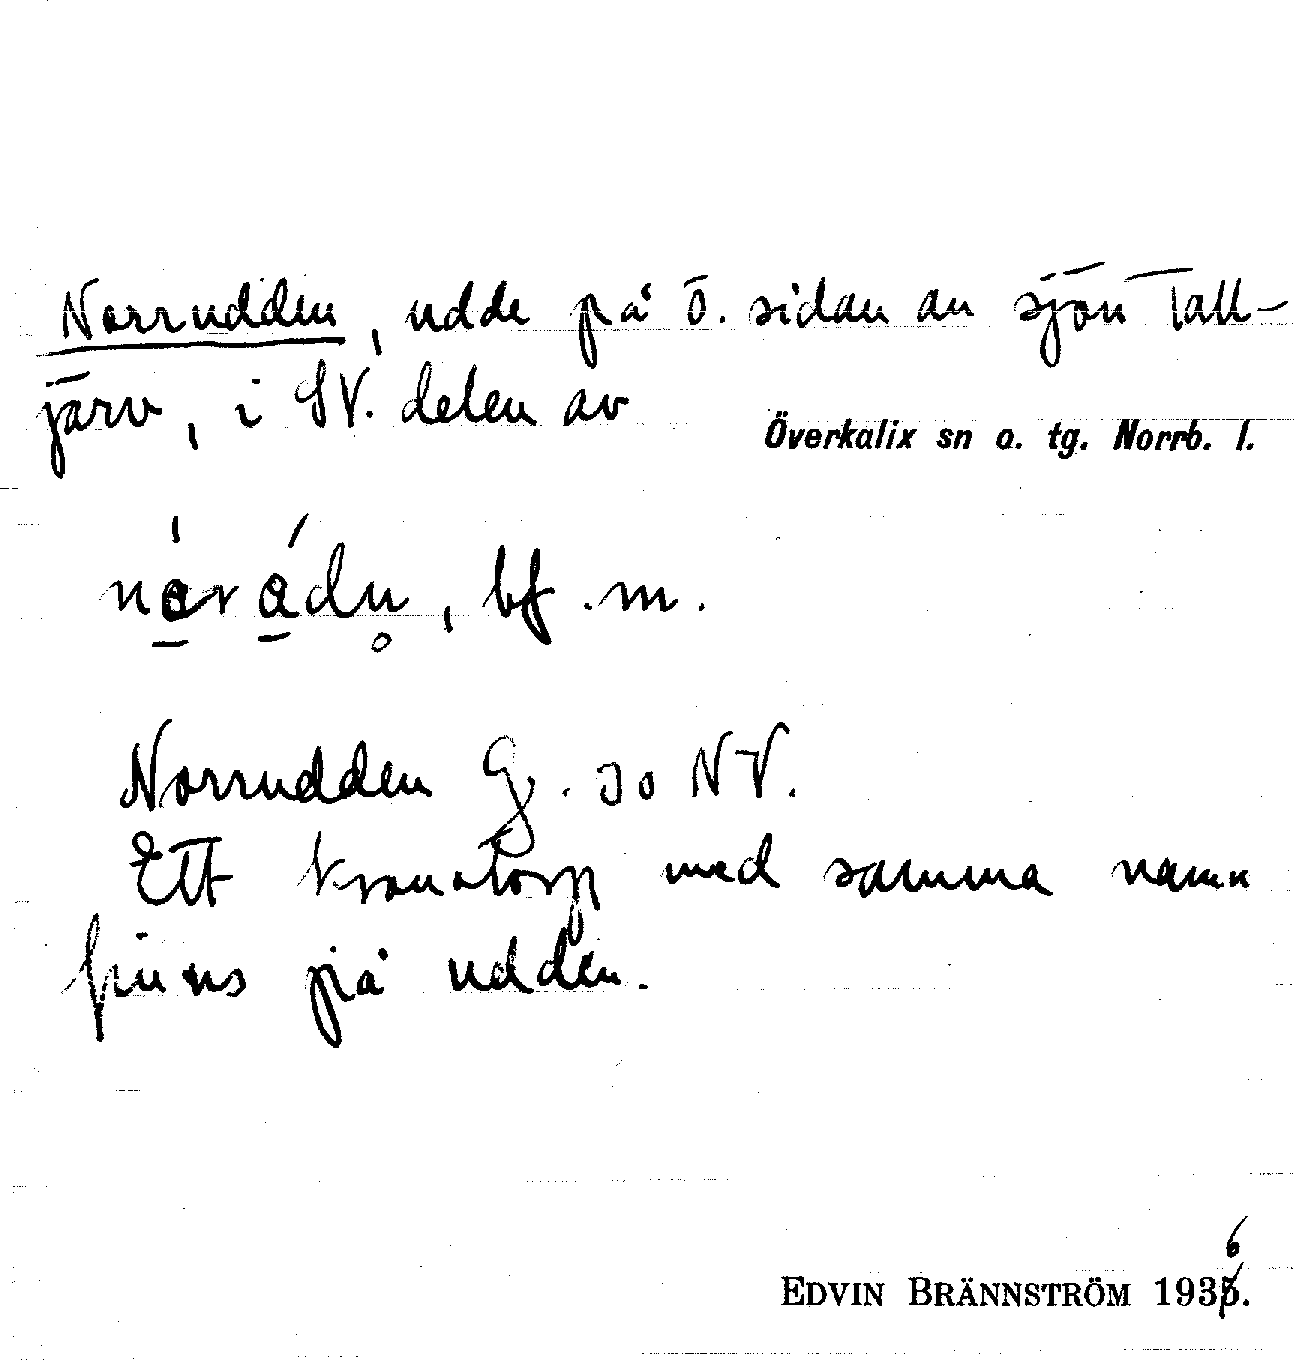 Norrudden, udde på ö. sidan av sjön Tall-
järv, i SV. delen av
Överkalix sn o. tg. Norrb. l.
bf. m.
Norrudden G. 30 NV.
Ett kronotorp med samma namn
finns på udden.
EDVIN BRÄNNSTRÖM 1936.